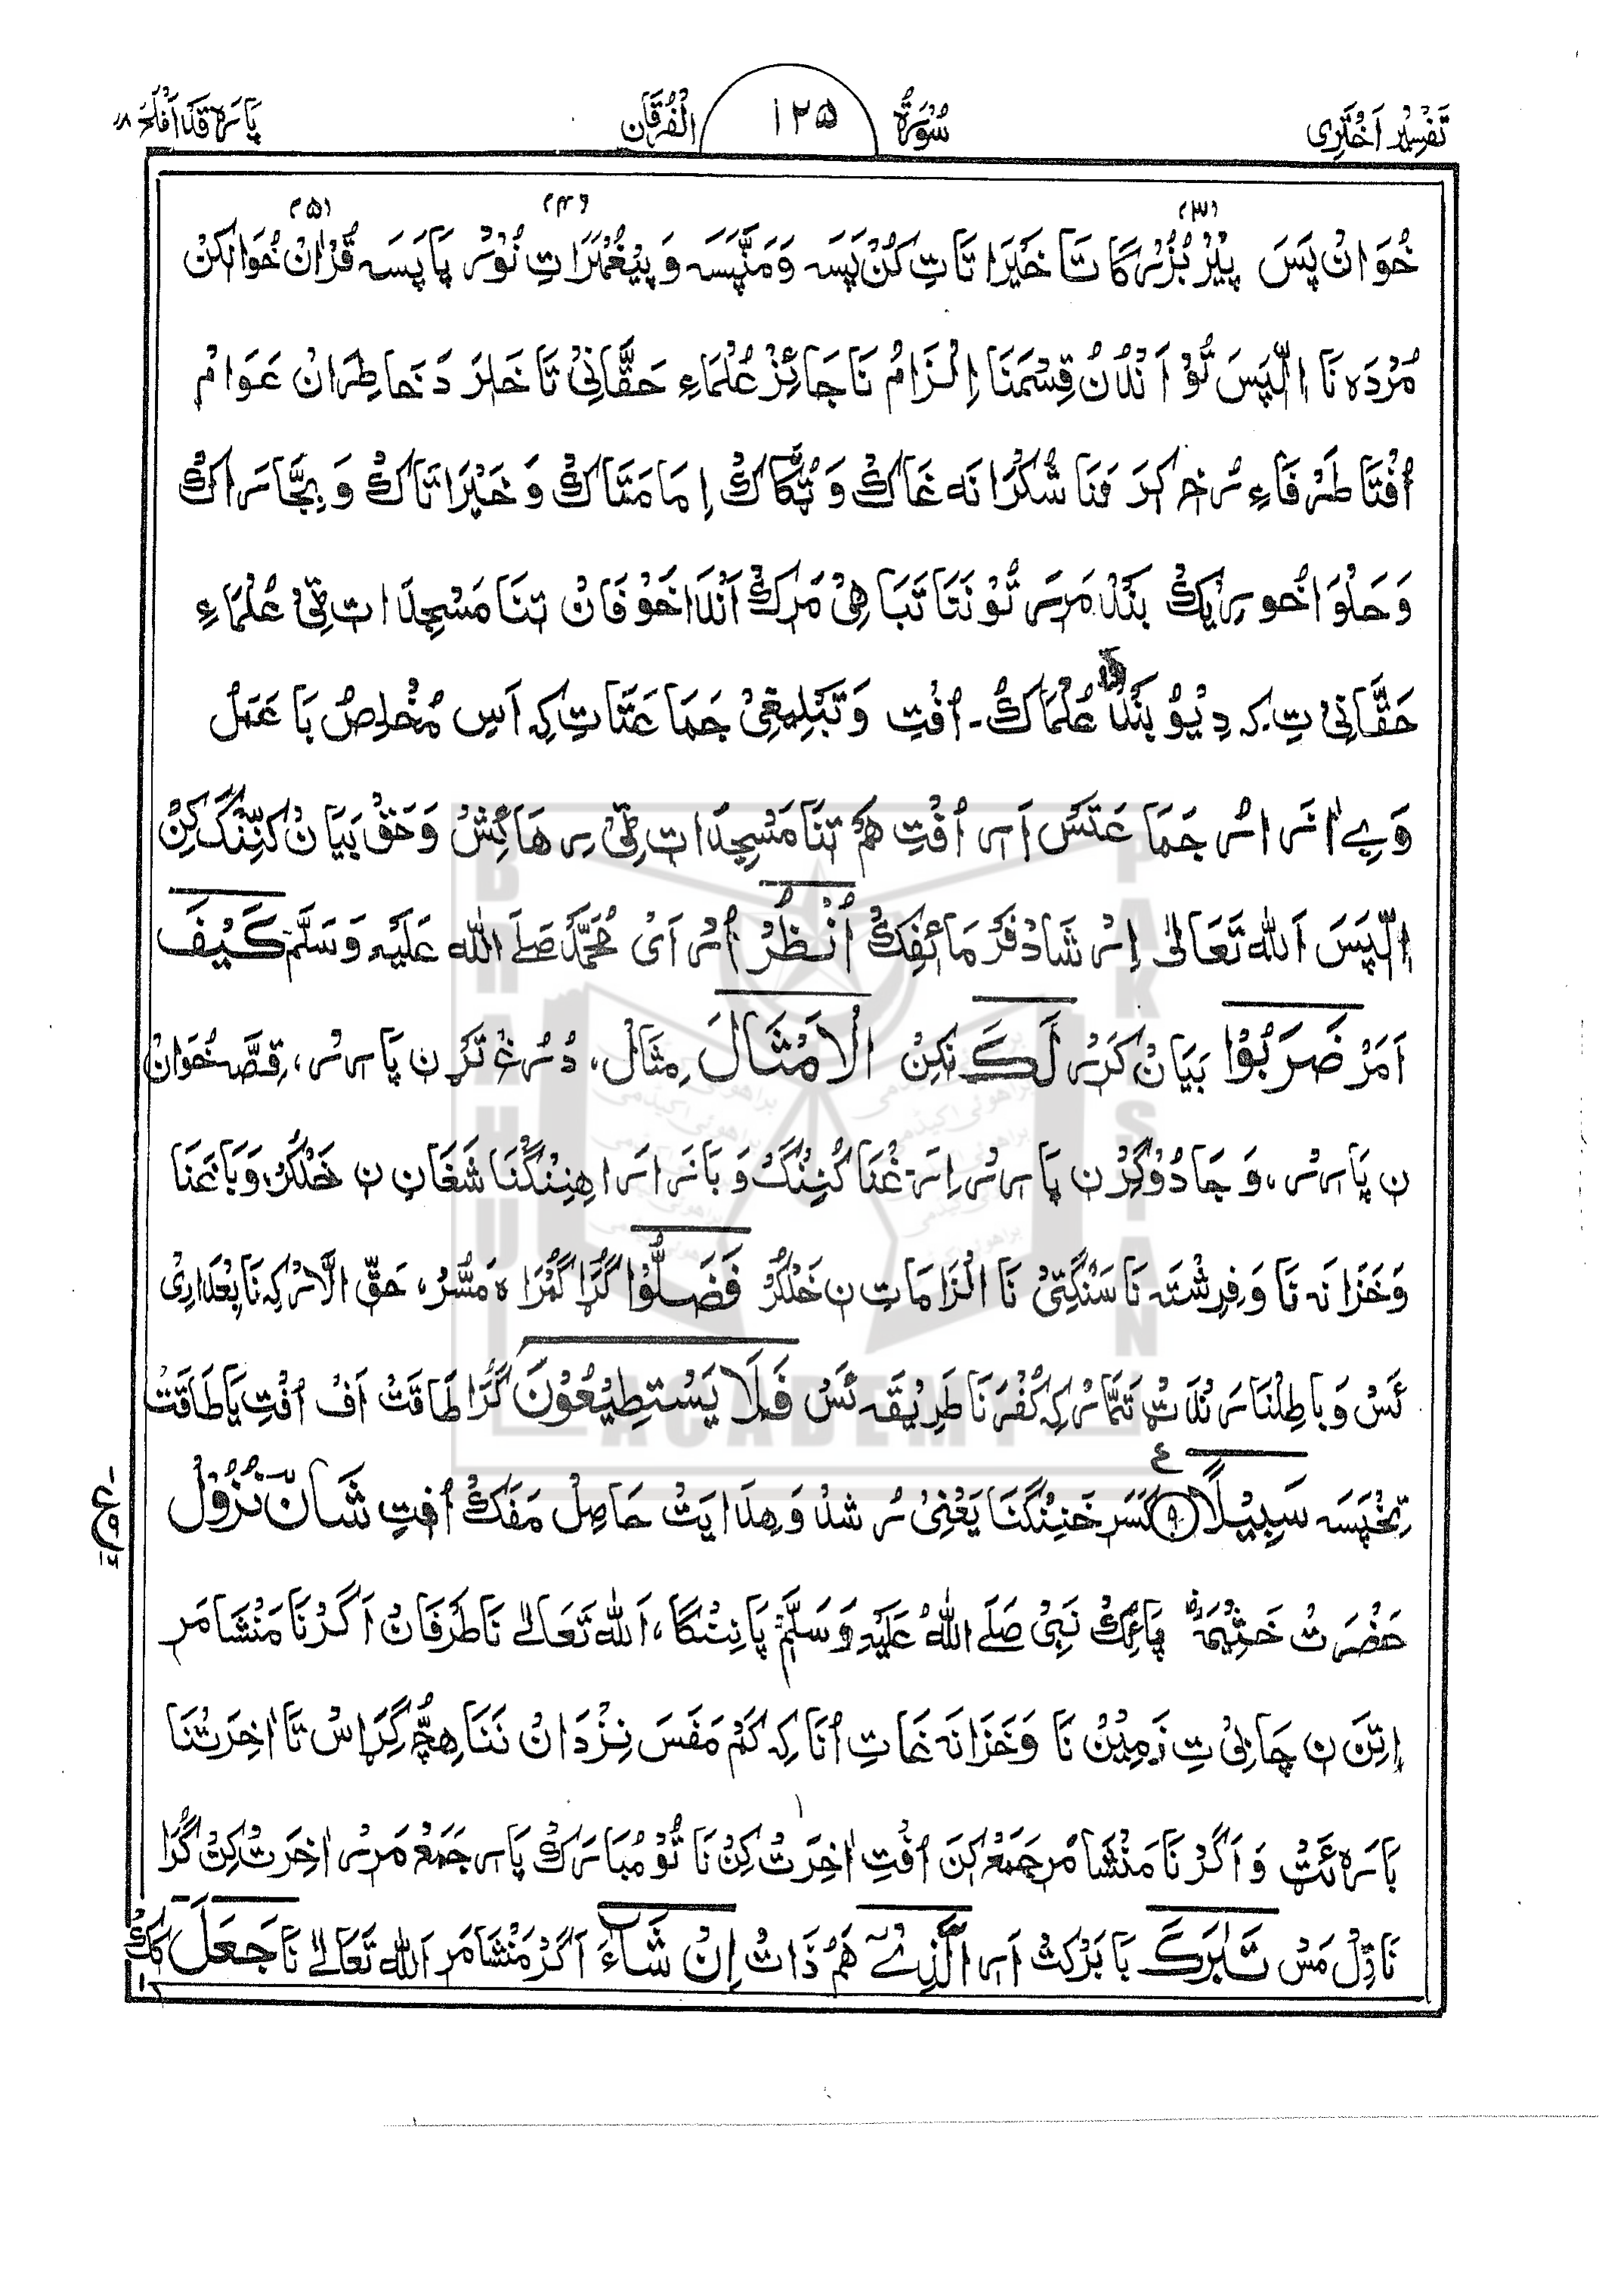 تَفْسِیْر اَخْتَرِی سُوْرَۃُ ۱۲۵ اَلْفُرْقَان پَارَہ قَدْ اَفْلَحَ ۱۸
(۳) (۴) (۵)
خُوَانْ پَسَ پِیْرْ بُزُرْگَاتَا خَیْرَاتَاتِ کُنْ پَسَہ وَمَنَّپَسَہ وَ پِیْغَمْبَرَاتِ نُوْرْ پَاپَسَہ قُرْاٰنْ خُوَانِکِنْ
مُرْدَہ نَا اِلِّپَسَ تُوْ اَنْدُنْ قِسْمَنَا اِلْزَامْ نَاجَائِزْ عُلْمَاءِ حَقَّانِیْ تَا خَلِرَ دَ خَاطِرَانْ عَوَامْ
اُفْتَا طَرْفَاءِ رُخْ کَرَ تَنَا شُکْرَانَہ غَاکْ وَ اِمَامَتَاکْ وَ خَیْرَاتَاکْ وَ
وَ حَلْوَا بَنْد مَرَسَ تُوْ نَتَا تَبَاھِیْ مَرَکْ اَنْدَا خَوْفَانْ تَنَا مَسْجِدَاتِ ٹِیْ عُلْمَاءِ
حَقَّانِیْ تِ۔ کہ دِیْوْبَنْد نَا عُلْمَاکْ۔ اُفْتِ وَ تَبْلِیْغِیْ جَمَاعَتَاتِ کِہ اَسِ مُخْلِصْ بَاعَمَلْ
وَ جَمَاعَتَسْ اَرِ اُفْتِ ھَمْ تَنَا مَسْجِدَاتِ ٹِیْ رِھَائِشْ وَ حَقْ بَیَانْ کَنِّنْگ کِنْ
اِلِّپَسَ اَللہ تَعَالٰی اِرْشَاد فَرْمَائِفِکْ اُنْظُرْ اُرْ اَیْ مُحَمَّدْ صَلَے اللہ عَلَیْہِ وَسَلَّمَ کَیْفَ
اَمَرْ ضَرَبُوْا بَیَانْ کَرَرْ لَکَ نَکِنْ الْاَمْثَالَ مِثَالْ، دُرُغْ تَرَّ ن پَارِرْ، قِصَّہ خُوَانْ
ن پَارِرْ، وَ جَادُوْگَرْ ن پَارِرْ اِرَغْنَا کُنِنْگ وَ بَازَارَا ھِنِنْگنَا شَغَانِ ن خَلْکُرْ وَ بَاغَنَا
وَ خَزَانَہ نَا وَ فِرِشْتَہ نَا سَنْگَتِیْ نَا اِلْزَامَاتِ ن خَلْکُرْ فَضَلُّوْا گُڑَا گُمْرَاہ مَسُّرْ، حَقّ اَلَّاسْ کِہ تَابِعْدَارِیْ
ئَسْ وَ بَاطِلْنَا کِہ کُفْرَنَا طَرِیْقَہ ئَسْ فَلَا یَسْتَطِیْعُوْنَ گُڑَا طَاقَتْ اَفْ اُفْتِ یَا طَاقَتْ
تِخْپَسَہ سَبِیْلًا ﴿۹﴾ ع کَسَرَ خَنِنْگنَا یَعْنِیْ رُشْد وَ ھِدَایَتْ حَاصِلْ مَفَکْ اُفْتِ شَانِ نُزُوْلْ
حَضْرَتْ خَثِیْمَہ پَائِکْ نَبِیْ صَلَے اللہُ عَلَیْہِ وَسَلَّمْ پَانِنْگَا، اَللہ تَعَالٰے نَا طَرْفَانْ اَگَرْ نَا مَنْشَا مَرِ
اِتِّنْ ن چَابِیْ تِ زَمِیْنْ نَا وَ خَزَانَہ غَاتِ اُنَا کِہ کَمْ مَفَسَ نِزْدَانْ نَنَا ھِچّ گِڑَاسْ تَا اٰخِرَتْنَا
بَارَہ ئَٹْ وَ اَگَرْ نَا مَنْشَا مَرِ جَمَعْ کِنَ اُفْتِ اٰخِرَتْ کِنْ نَا تُوْ مُبَارَکْ پَارِ جَمَعْ مَرِرْ اٰخِرَتْ کِنْ گُڑَا
نَازِلْ مَسْ تَبٰرَکَ بَابَرْکَتْ اَرِ الَّذِیْٓ ھَمْ ذَاتْ اِنْ شَآءَ اَگَرْ مَنْشَا مَرِ اَللہ تَعَالٰے نَا جَعَلَ کَکْ
BRAHUI ACADEMY PAKISTAN